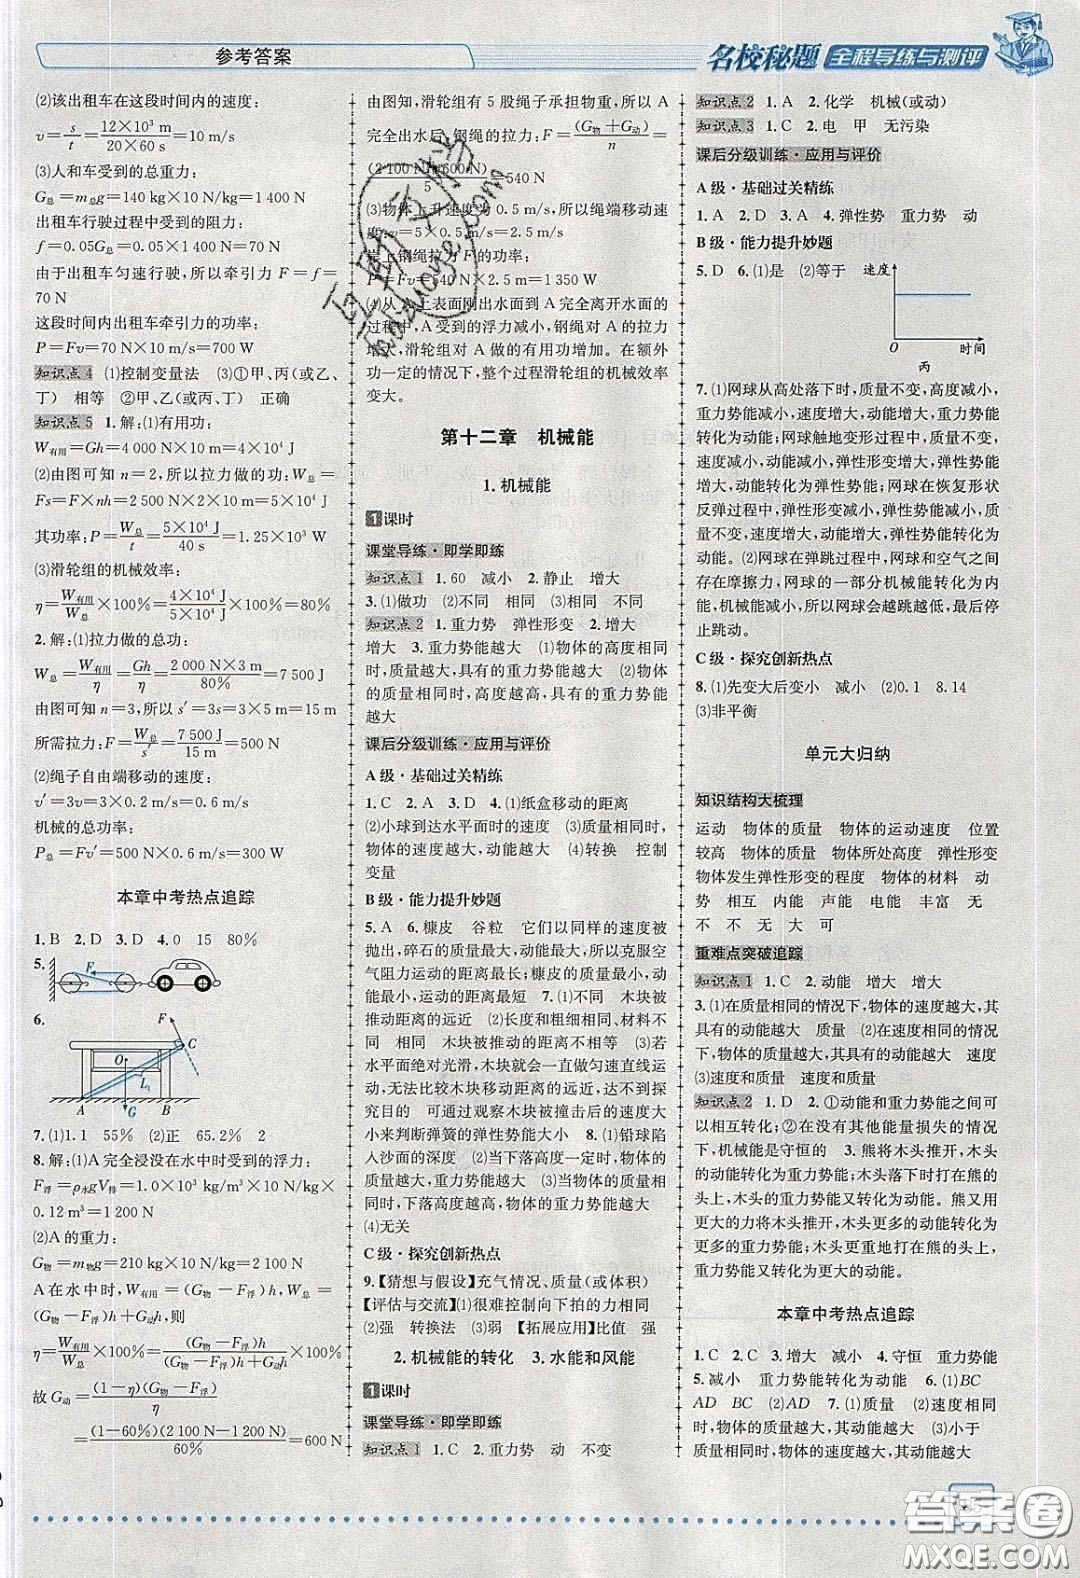 参考答案
名校秘题 全程导练与测评
(2)该出租车在这段时间内的速度：
v=s/t=12×10³ m/20×60 s=10 m/s
(3)人和车受到的总重力：
G总=m总g=140 kg×10 N/kg=1 400 N
出租车行驶过程中受到的阻力：
f=0.05G总=0.05×1 400 N=70 N
由于出租车匀速行驶,所以牵引力 F=f=
70 N
这段时间内出租车牵引力的功率：
P=Fv=70 N×10 m/s=700 W
知识点4 (1)控制变量法 (3)①甲、丙(或乙、
丁) 相等 ②甲、乙(或丙、丁) 正确
知识点5 1.解：(1)有用功：
W有用=Gh=4 000 N×10 m=4×10⁴ J
(2)由图可知 n=2,所以拉力做的功：W总=
Fs=F×nh=2 500 N×2×10 m=5×10⁴ J
其功率：P=W总/t=5×10⁴ J/40 s=1.25×10³ W
(3)滑轮组的机械效率：
η=W有用/W总×100%=4×10⁴ J/5×10⁴ J×100%=80%
2.解：(1)拉力做的总功：
W总=W有用/η=Gh/η=2 000 N×3 m/80%=7 500 J
由图可知 n=3,所以 s′=3s=3×5 m=15 m
所需拉力：F=W总/s′=7 500 J/15 m=500 N
(2)绳子自由端移动的速度：
v′=3v=3×0.2 m/s=0.6 m/s
机械的总功率：
P总=Fv′=500 N×0.6 m/s=300 W
本章中考热点追踪
1.B 2.D 3.D 4.0 15 80%
5.
F
6.
F
C
O
L₁
A G B
7.(1)1.1 55% (2)正 65.2% 2
8.解：(1)A完全浸没在水中时受到的浮力：
F浮=ρ水gV排=1.0×10³ kg/m³×10 N/kg×
0.12 m³=1 200 N
(2)A的重力：
G物=m物g=210 kg×10 N/kg=2 100 N
A在水中时,W有用=(G物-F浮)h,W总=
(G物-F浮)h+G动h,则
η=W有用/W总×100%=(G物-F浮)h/(G物-F浮)h+G动h×100%
故 G动=(1-η)(G物-F浮)/η
=(1-60%)(2 100 N-1 200 N)/60%=600 N
由图知,滑轮组有 5 股绳子承担物重,所以 A
完全出水后,钢绳的拉力：F=(G物+G动)/n
=(2 100 N+600 N)/5=540 N
(3)物体上升速度为 0.5 m/s,所以绳端移动速
度：v=5×0.5 m/s=2.5 m/s
岸上钢绳拉力 F 的功率：
P=Fv=540 N×2.5 m/s=1 350 W
(4)从 A 上表面刚出水面到 A 完全离开水面的
过程中,A 受到的浮力减小,钢绳对 A 的拉力
增大,滑轮组对 A 做的有用功增加。在额外
功一定的情况下,整个过程滑轮组的机械效率
变大。
第十二章 机械能
1.机械能
1课时
课堂导练·即学即练
知识点1 1.60 减小 2.静止 增大
3.(1)做功 (2)不同 相同 (3)相同 不同
知识点2 1.重力势 弹性形变 2.增大
增大 3.重力势能越大 (1)物体的高度相同
时,质量越大,具有的重力势能越大 (2)物体
的质量相同时,高度越高,具有的重力势能
越大
课后分级训练·应用与评价
A级·基础过关精练
1.C 2.A 3.D 4.(1)纸盒移动的距离
(2)小球到达水平面时的速度 (3)质量相同
时,速度越大,动能越大 (4)转换 控制
变量
B级·能力提升妙题
5.A 6.糠皮 谷粒 它们以同样的速度被
抛出,碎石的质量最大,动能最大,所以克服空
气阻力运动的距离最长；糠皮的质量最小,动
能最小,运动的距离最短 7.(1)不同 木块被
推动距离的远近 (2)长度和粗细相同、材料不
同 相同 木块被推动的距离不相等 (3)若
水平面绝对光滑,木块就会一直做匀速直线运
动,无法比较木块移动距离的远近,达不到探
究目的 可通过观察木块被撞击后的速度大
小来判断弹簧的弹性势能大小 8.(1)铅球陷
入沙面的深度 (2)下落高度一定时,物体的
质量越大,重力势能越大 (3)当物体质量相同
时,下落高度越大,物体的重力势能越大
(4)无关
C级·探究创新热点
9.【猜想与假设】充气情况、质量(或体积)
【评估与交流】(1)很难控制向下拍的力相同
(2)强 转换法 (3)弱 【拓展应用】比值 强
2.机械能的转化 3.水能和风能
1课时
课堂导练·即学即练
知识点1 1.C 2.重力势 动 不变
知识点2 1.A 2.化学 机械(或动)
知识点3 1.C 2.电 甲 无污染
课后分级训练·应用与评价
A级·基础过关精练
1.A 2.D 3.A 4.弹性势 重力势 动
B级·能力提升妙题
5.D 6.(1)是 (2)等于
速度
O 时间
丙
7.(1)网球从高处落下时,质量不变,高度减小,
重力势能减小,速度增大,动能增大,重力势能
转化为动能；网球触地变形过程中,质量不变,
速度减小,动能减小,弹性形变增大,弹性势能增
大,动能转化为弹性势能；网球在恢复形状
反弹过程中,弹性形变减小,弹性势能减小,质量
不变,速度增大,动能增大,弹性势能转化为
动能。(2)网球在弹跳过程中,网球和空气之间
存在摩擦力,网球的一部分机械能转化为内
能,机械能减小,所以网球会越跳越低,最后停
止跳动。
C级·探究创新热点
8.(1)先变大后变小 减小 (2)0.1 8.14
(3)非平衡
单元大归纳
知识结构大梳理
运动 物体的质量 物体的运动速度 位置
较高 物体的质量 物体所处高度 弹性形变
物体发生弹性形变的程度 物体的材料 动
势 相互 内能 声能 电能 丰富 无
不 不 无 大 可
重难点突破追踪
知识点1 1.C 2.动能 增大 增大
3.(1)在质量相同的情况下,物体的速度越大,其
具有的动能越大 质量 (2)在速度相同的情况
下,物体的质量越大,其具有的动能越大 速度
(3)速度和质量 速度和质量
知识点2 1.D 2.①动能和重力势能之间可
以相互转化；②在没有其他能量损失的情况
下,机械能是守恒的 3.熊将木头推开,木头
动能转化为重力势能；木头落下时打在熊的
头上,木头的重力势能又转化为动能。熊又用
更大的力将木头推开,木头更多的动能转化为
更多的重力势能；木头更重地打在熊的头上,
重力势能又转化为更大的动能。
本章中考热点追踪
1.C 2.C 3.增大 减小 4.守恒 重力势能
5.减小 重力势能转化为动能 6.(1)BC
AD BC (2)AD 7.(1)质量 (2)速度
相同时,物体的质量越大,动能越大 (3)小于
质量相同时,物体的速度越大,动能越大
答案圈
MXQE.COM